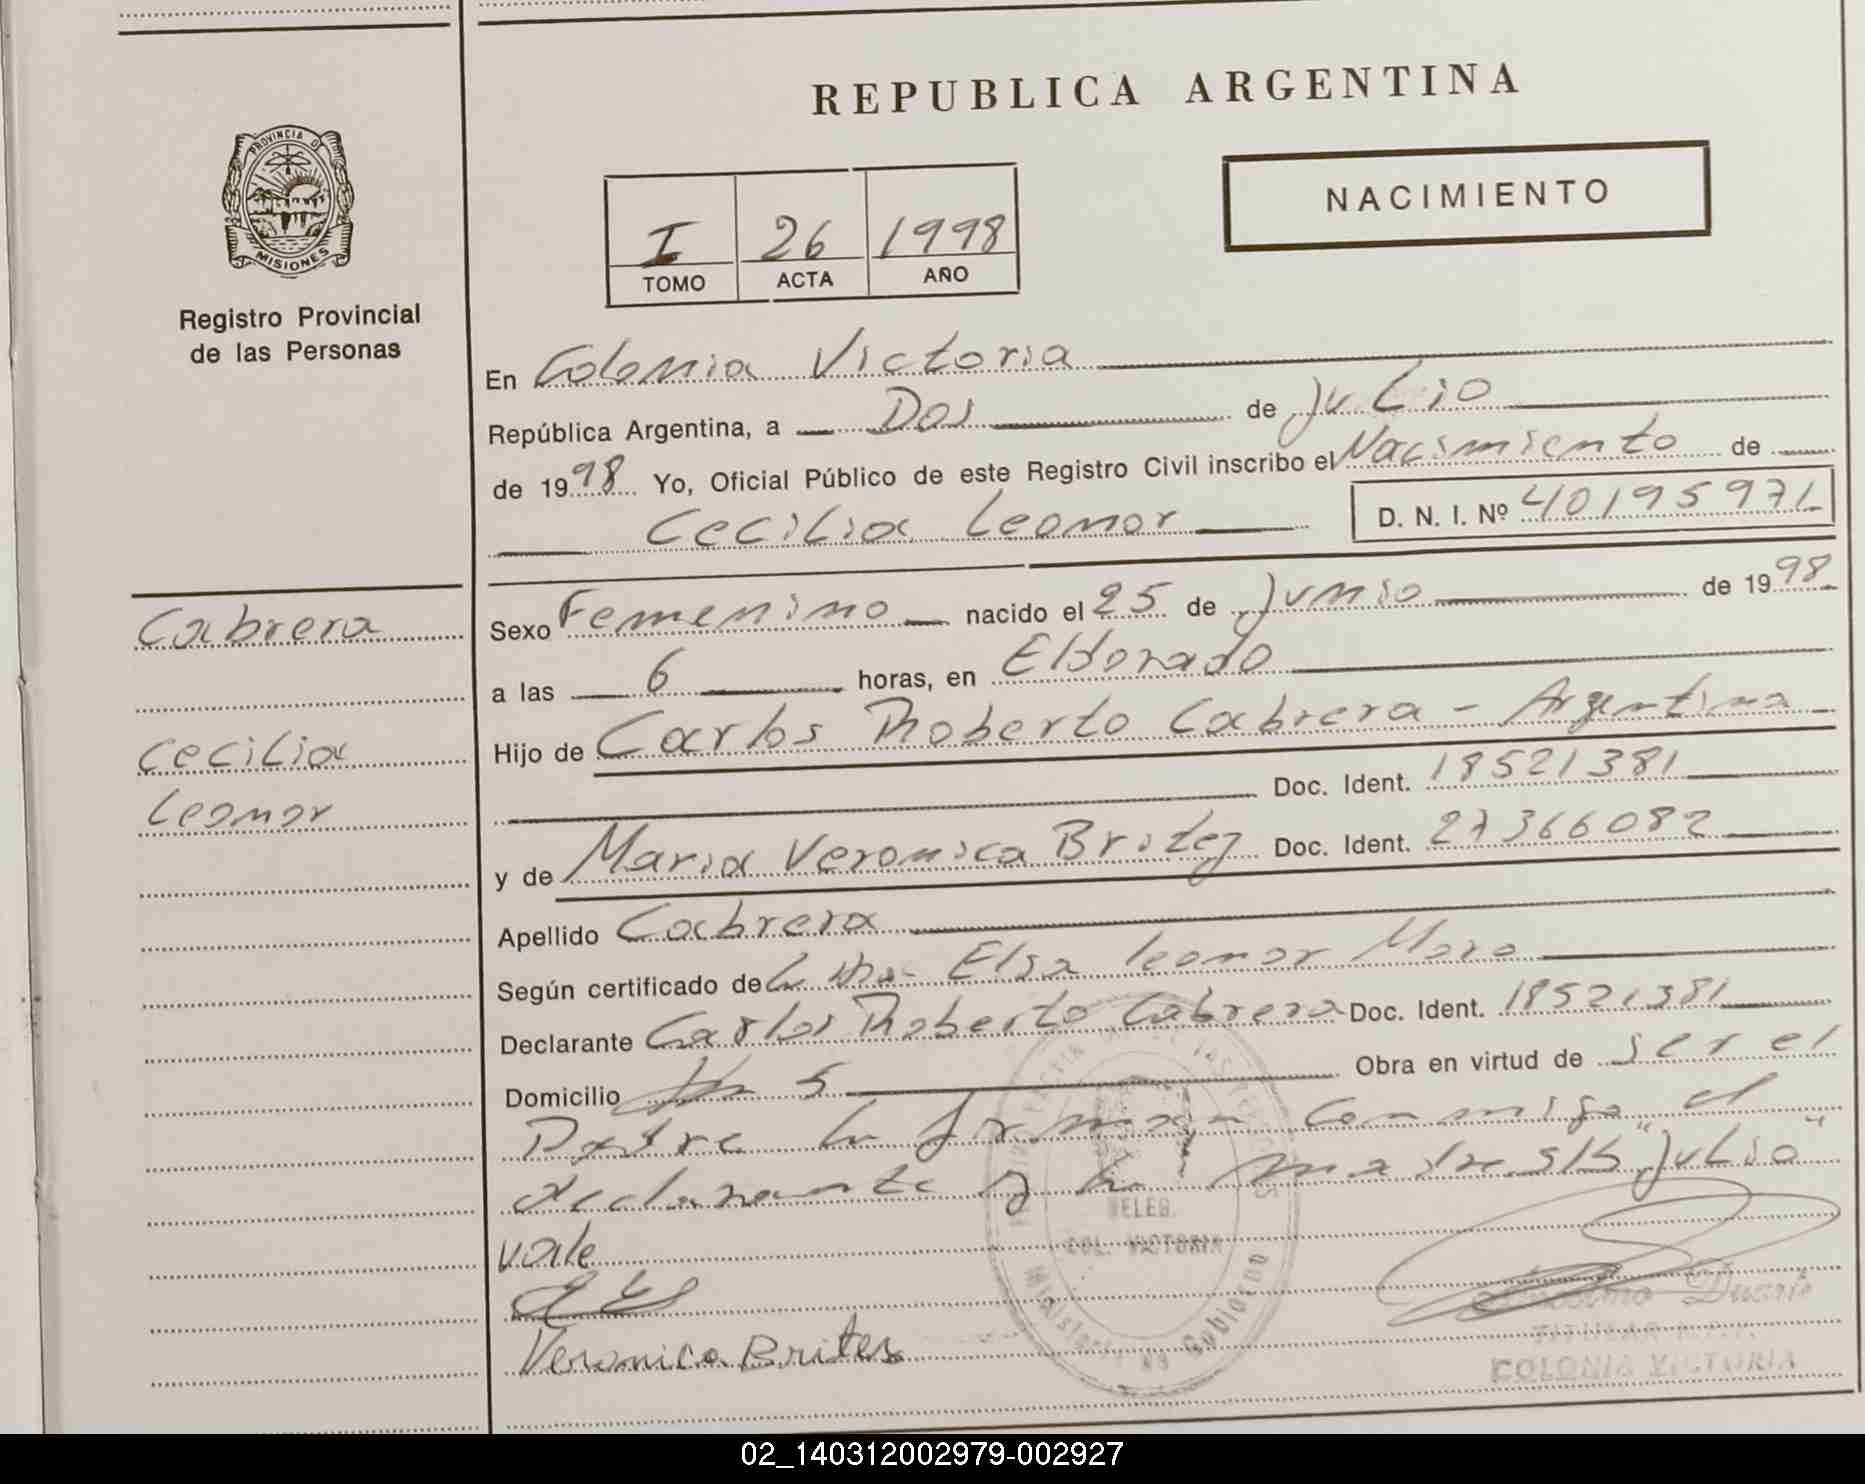 REPUBLICA ARGENTINA
PROVINCIA D
MISIONES
Registro Provincial
de las Personas
I 26 1998
TOMO ACTA AÑO
NACIMIENTO
En Colonia Victoria
República Argentina, a Dos de Julio
de 1998 Yo, Oficial Público de este Registro Civil inscribo el Nacimiento de
Cecilia Leonor D. N. I. Nº 40195971
Cabrera
Cecilia
Leonor
Sexo Femenino nacido el 25 de Junio de 1998
a las 6 horas, en Eldorado
Hijo de Carlos Roberto Cabrera - Argentina
Doc. Ident. 18521381
y de Maria Veronica Britez Doc. Ident. 27366082
Apellido Cabrera
Según certificado de la Dra. Elsa Leonor Moro
Declarante Carlos Roberto Cabrera Doc. Ident. 18521381
Domicilio 5 Obra en virtud de ser el
Padre la firman conmigo el
declarante y la madre s/b "Julio"
vale
Veronica Brites
DELEG.
COL. VICTORIA
Ministerio de Gobierno
Duarte
TITULAR R.P.P.
COLONIA VICTORIA
02_140312002979-002927